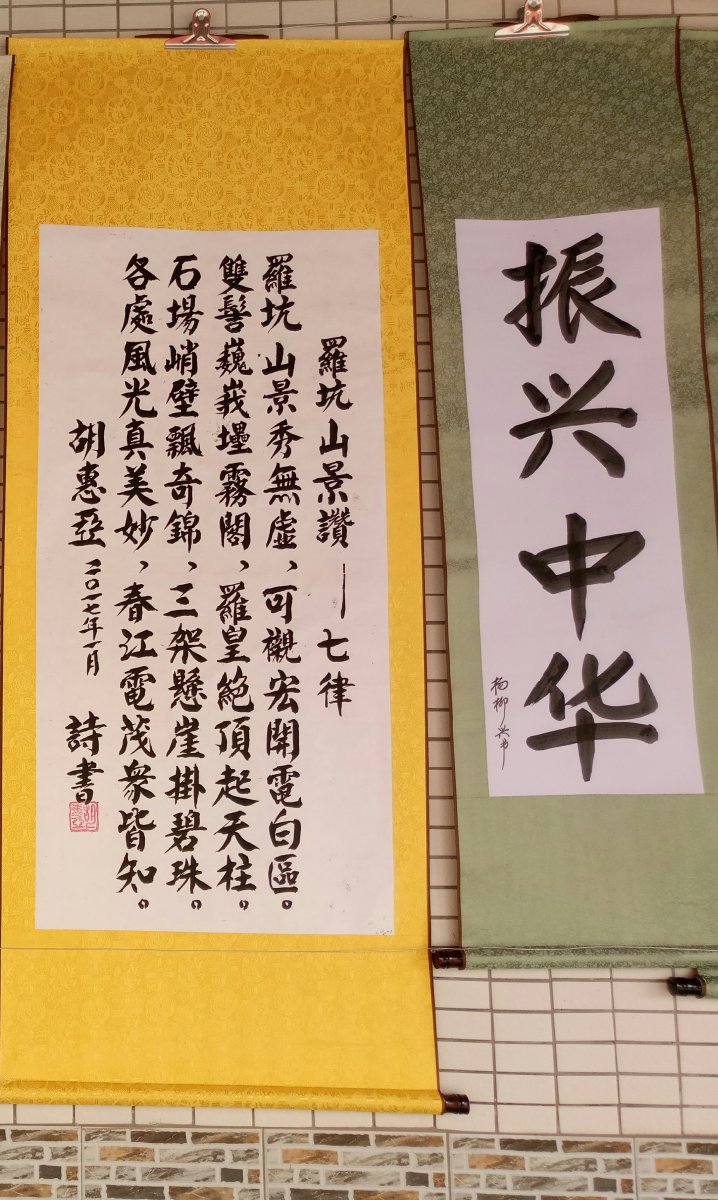 振兴中华
杨柳兴书
羅坑山景讚——七律
羅坑山景秀無虛，可觀宏開電白區。
雙髻巍峩壘霧閣、羅皇絕頂起天柱。
石場峭壁飄奇錦、三架懸崖掛碧珠。
各處風光真美妙，春江電茂衆皆知。
胡惠亞 二〇一七年一月 詩書